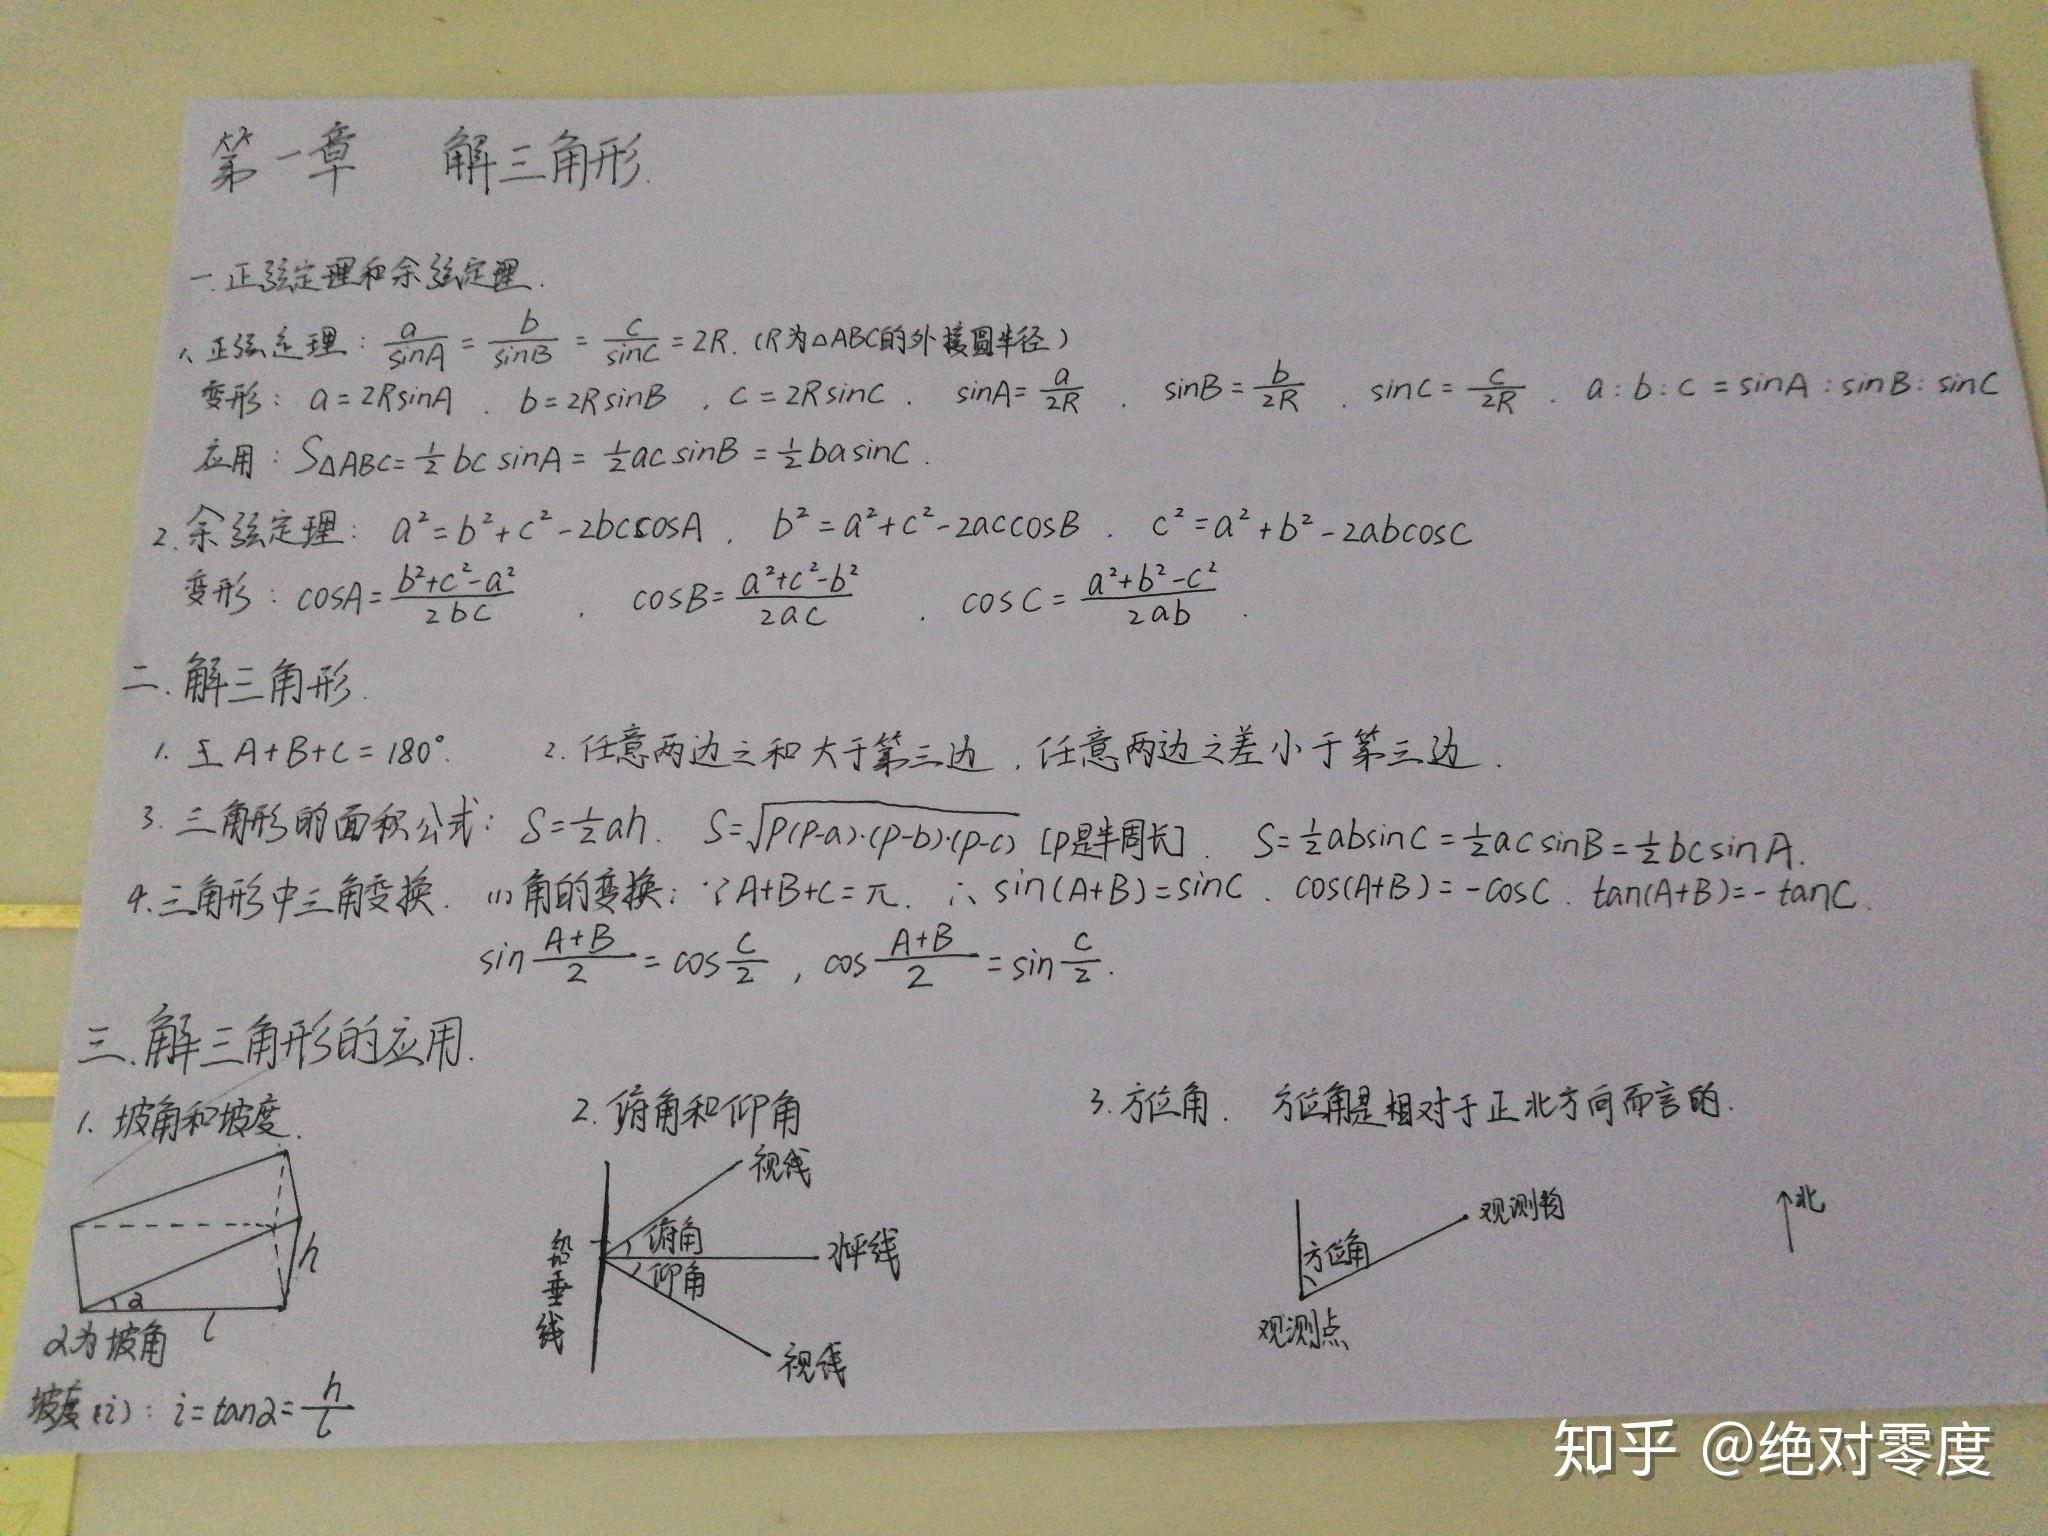 第一章 解三角形.
一.正弦定理和余弦定理.
1、正弦定理: a/sinA = b/sinB = c/sinC = 2R. (R为△ABC的外接圆半径)
变形: a=2RsinA . b=2RsinB . c=2RsinC . sinA=a/2R . sinB=b/2R . sinC=c/2R . a:b:c=sinA:sinB:sinC
应用: S△ABC=½bcsinA=½acsinB=½basinC.
2.余弦定理: a²=b²+c²-2bccosA . b²=a²+c²-2accosB . c²=a²+b²-2abcosC
变形: cosA=(b²+c²-a²)/2bc . cosB=(a²+c²-b²)/2ac . cosC=(a²+b²-c²)/2ab .
二.解三角形.
1. A+B+C=180°. 2.任意两边之和大于第三边 . 任意两边之差小于第三边 .
3.三角形的面积公式: S=½ah. S=√P(P-a)·(P-b)·(P-c) [P是半周长]. S=½absinC=½acsinB=½bcsinA.
4.三角形中三角变换. (1)角的变换: ∵A+B+C=π. ∴sin(A+B)=sinC . cos(A+B)=-cosC . tan(A+B)=-tanC.
sin (A+B)/2 = cos C/2 , cos (A+B)/2 = sin C/2.
三.解三角形的应用.
1. 坡角和坡度.
h
α
l
α为坡角
坡度(i): i=tanα=h/l
2.俯角和仰角
视线
俯角
水平线
仰角
铅垂线
视线
3.方位角. 方位角是相对于正北方向而言的.
观测物
方位角
观测点
北
知乎 @绝对零度